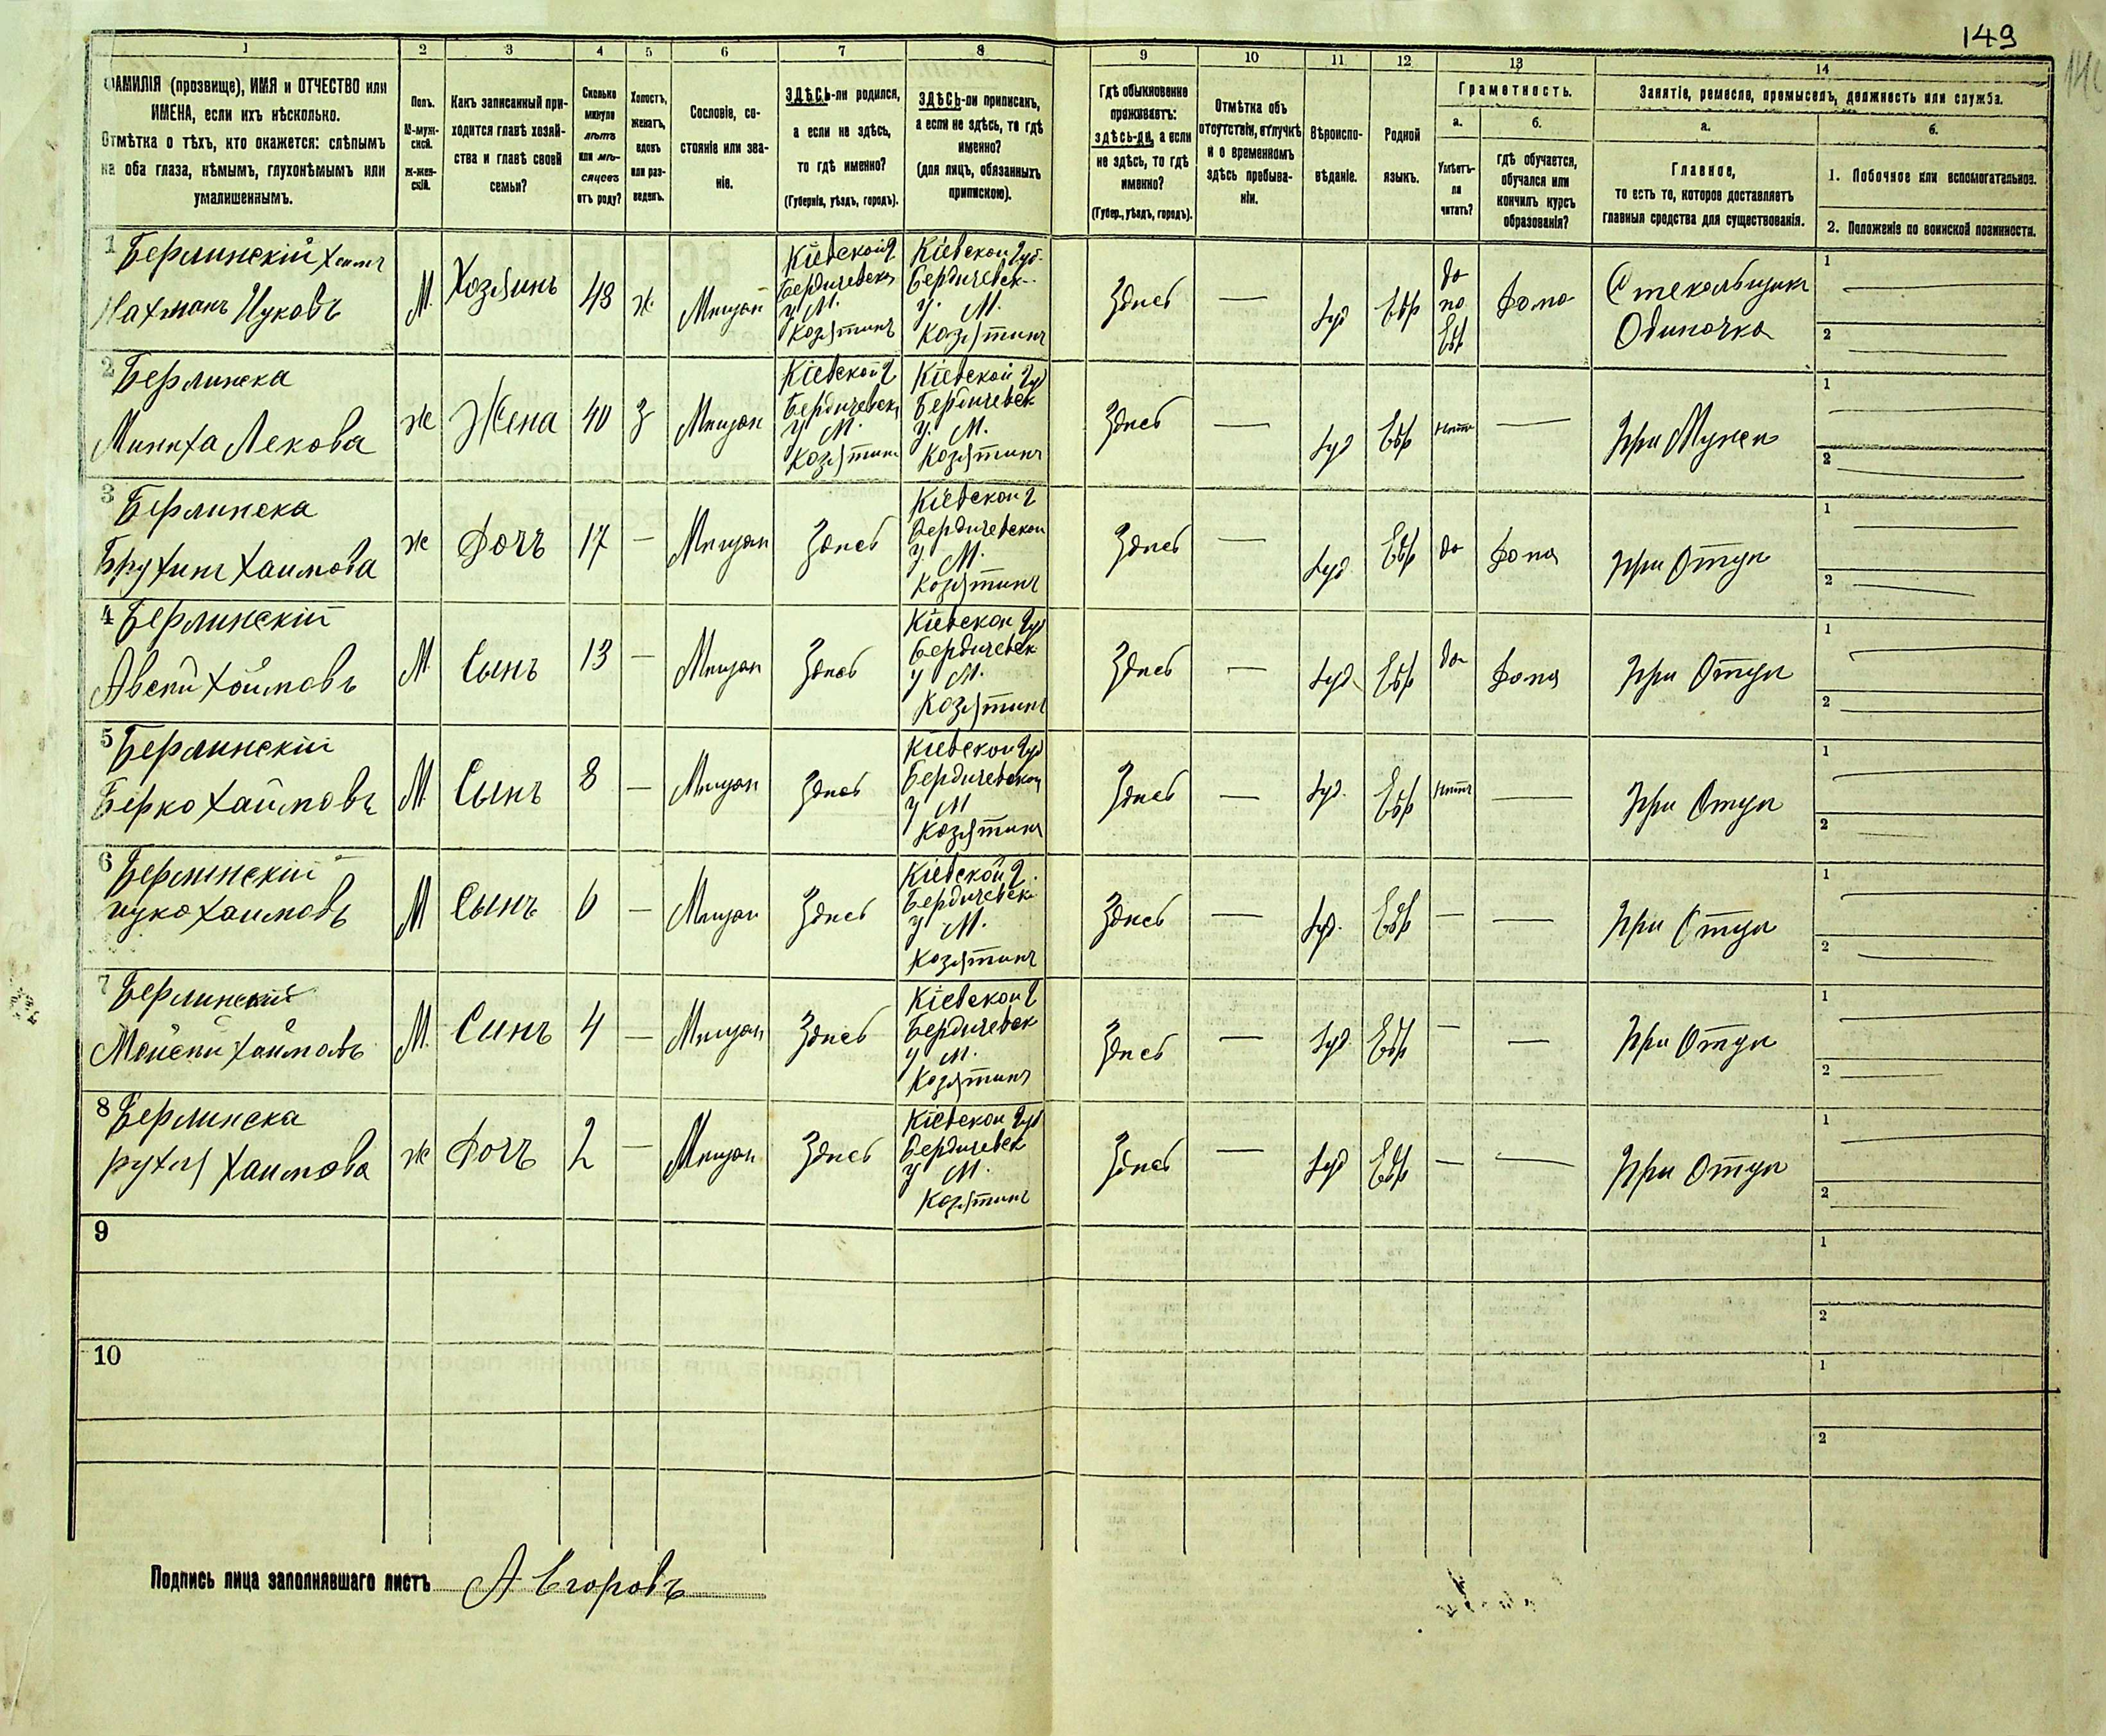 149
1 2 3 4 5 6 7 8 9 10 11 12 13 14
ФАМИЛІЯ (прозвище), ИМЯ и ОТЧЕСТВО или
ИМЕНА, если ихъ нѣсколько.
Отмѣтка о тѣхъ, кто окажется: слѣпымъ
на оба глаза, нѣмымъ, глухонѣмымъ или
умалишеннымъ.
Полъ.
М-муж-
ской.
Ж-жен-
скій.
Какъ записанный при-
ходится главѣ хозяй-
ства и главѣ своей
семьи?
Сколько
минуло
лѣтъ
или мѣ-
сяцевъ
отъ роду?
Холостъ,
женатъ,
вдовъ
или раз-
веденъ.
Сословіе, со-
стояніе или зва-
ніе.
ЗДѢСЬ-ли родился,
а если не здѣсь,
то гдѣ именно?
(Губернія, уѣздъ, городъ).
ЗДѢСЬ-ли приписанъ,
а если не здѣсь, то гдѣ
именно?
(для лицъ, обязанныхъ
припискою).
Гдѣ обыкновенно
проживаетъ:
здѣсь-ли, а если
не здѣсь, то гдѣ
именно?
(Губер., уѣздъ, городъ).
Отмѣтка объ
отсутствіи, отлучкѣ
и о временномъ
здѣсь пребыва-
ніи.
Вѣроиспо-
вѣданіе.
Родной
языкъ.
Грамотность.
а.
Умѣетъ-
ли
читать?
б.
гдѣ обучается,
обучался или
кончилъ курсъ
образованія?
Занятіе, ремесло, промыселъ, должность или служба.
а.
Главное,
то есть то, которое доставляетъ
главныя средства для существованія.
б.
1. Побочное или вспомогательное.
2. Положеніе по воинской повинности.
1 Берлинскій Хаимъ
Нахманъ Ицковъ
М. Хозяинъ 48 ж Мещан
Кіевской г
Бердичевск
у М.
Козятинъ
Кіевской губ.
Бердичевск.
у. М.
Козятинъ
Здесь — Іуд Евр
да
по
Евр
Дома
Стекольщикъ
Одиночка
1
2
2 Берлинска
Минха Лекова
ж Жена 40 з Мещан
Кіевской г
Бердичевск
у М.
Козятин
Кіевской губ
Бердичевск
у. М.
Козятинъ
Здесь — Іуд Евр нетъ — При Мужеи
1
2
3 Берлинска
Хаимова
ж Дочъ 17 — Мещан Здесь
Кіевской г
Бердичевской
у М.
Козятинъ
Здесь — Іуд. Евр да Дома При Отци
1
2
4 Берлинскій
Хаимовъ
М Сынъ 13 — Мещан Здесь
Кіевской губ
Бердичевск
у М.
Козятинъ
Здесь — Іуд. Евр да Дома При Отци
1
2
5 Берлинскій
Берко Хаимовъ
М Сынъ 8 — Мещан Здесь
Кіевской губ
Бердичевской
у М
Козятинъ
Здесь — Іуд. Евр нетъ — При Отци
1
2
6 Берлинскій
ицко Хаимовъ
М Сынъ 6 — Мещан Здесь
Кіевской г.
Бердичевск
у М.
Козятинъ
Здесь — Іуд. Евр — — При Отци
1
2
7 Берлинскій
Хаимовъ
М. Синъ 4 — Мещан Здесь
Кіевской г
Бердичевск
у М.
Козятинъ
Здесь — Іуд Евр — — При Отци
1
2
8 Берлинска
рухля Хаимова
ж Дочъ 2 — Мещан Здесь
Кіевской губ
Бердичевск
у М.
Козятинъ
Здесь — Іуд Евр — — При Отци
1
2
9
1
2
10
1
2
Подпись лица заполнявшаго листъ А Егоровъ